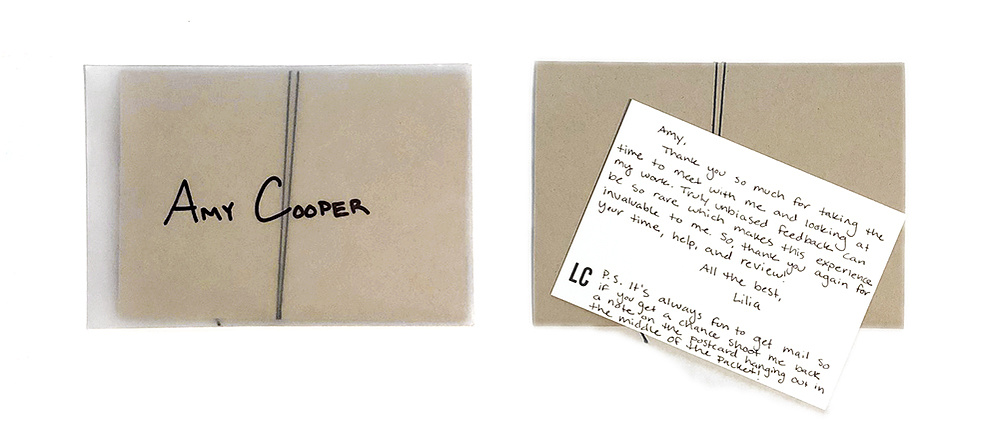 AMY COOPER
Amy,
Thank you so much for taking the
time to meet with me and looking at
my work. Truly unbiased feedback can
be so rare which makes this experience
invaluable to me. So, thank you again for
your time, help, and review!
All the best,
Lilia
LC
P.S. It's always fun to get mail so
if you get a chance shoot me back
a note on the postcard hanging out in
the middle of the packet!